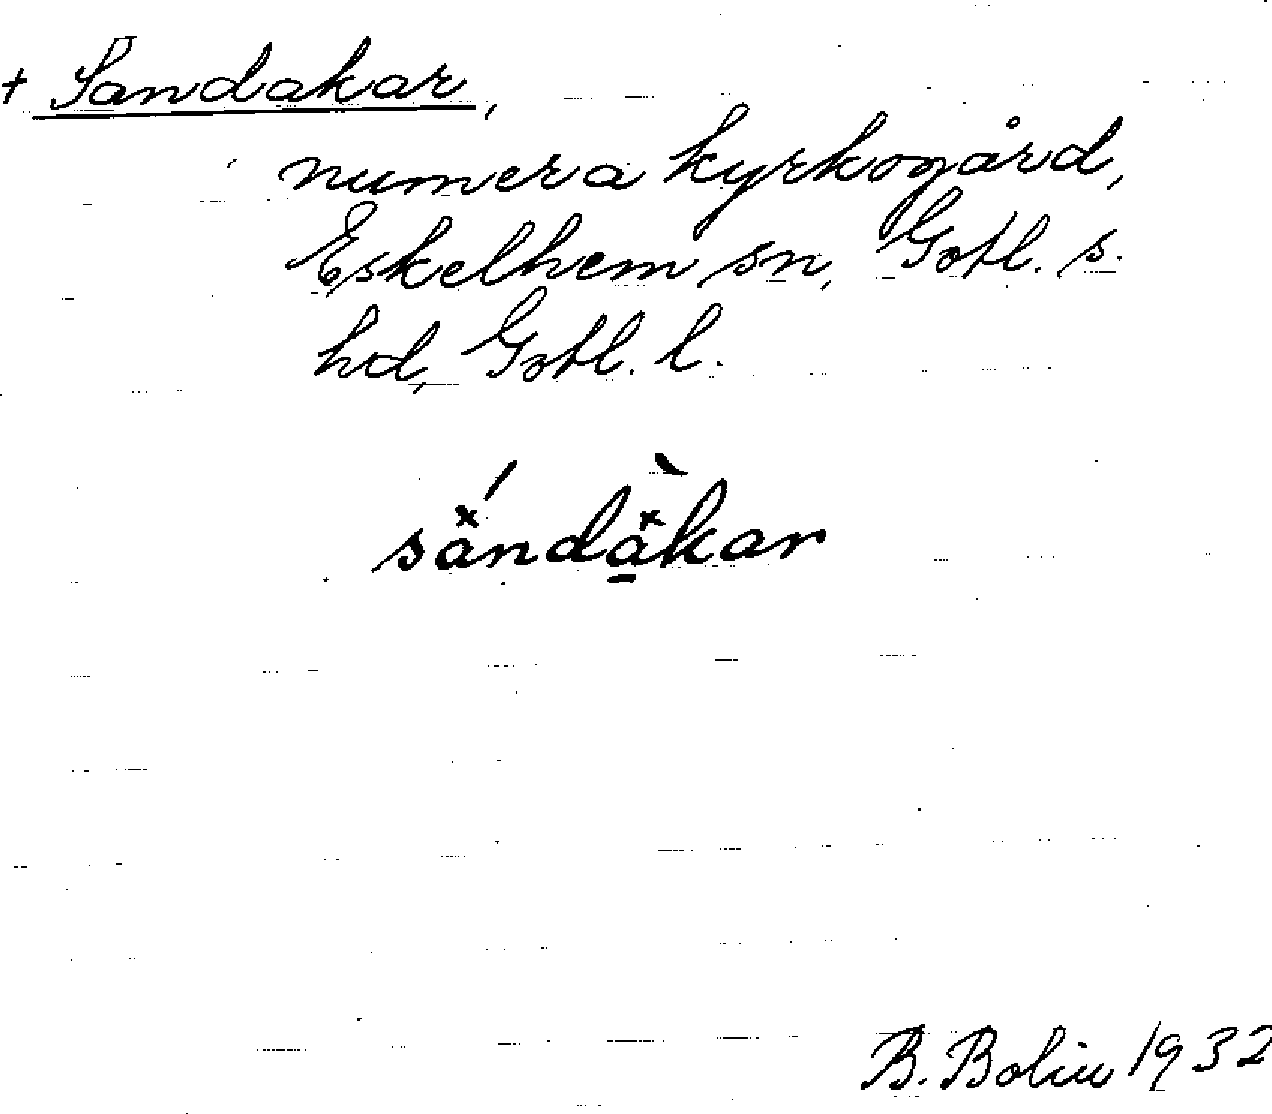 + Sandakar,
numera kyrkogård,
Eskelhem sn, Gotl. s.
hd, Gotl. l.
sandakar
B. Bolin 1932